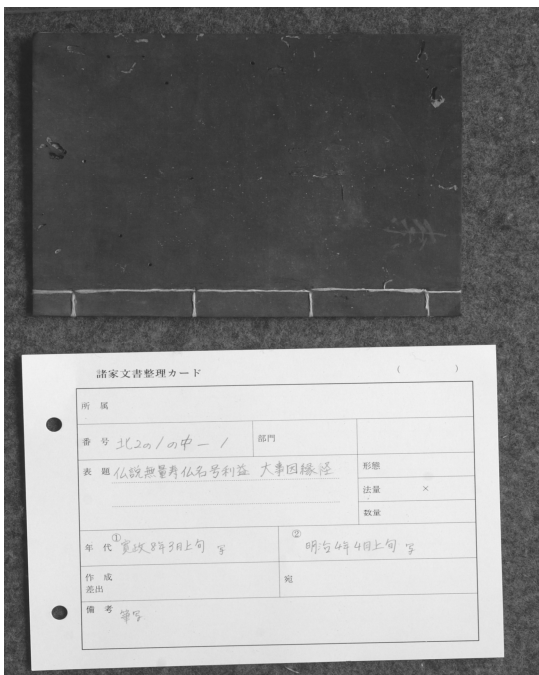 諸家文書整理カード ( )
所属
番号 北2の1の中-1 部門
表題 仏説無量寿仏名号利益 大事因縁経 形態
法量 ×
数量
年代 ①寛政8年3月上旬 写 ②明治4年4月上旬 写
作成 宛
差出
備考 筆写